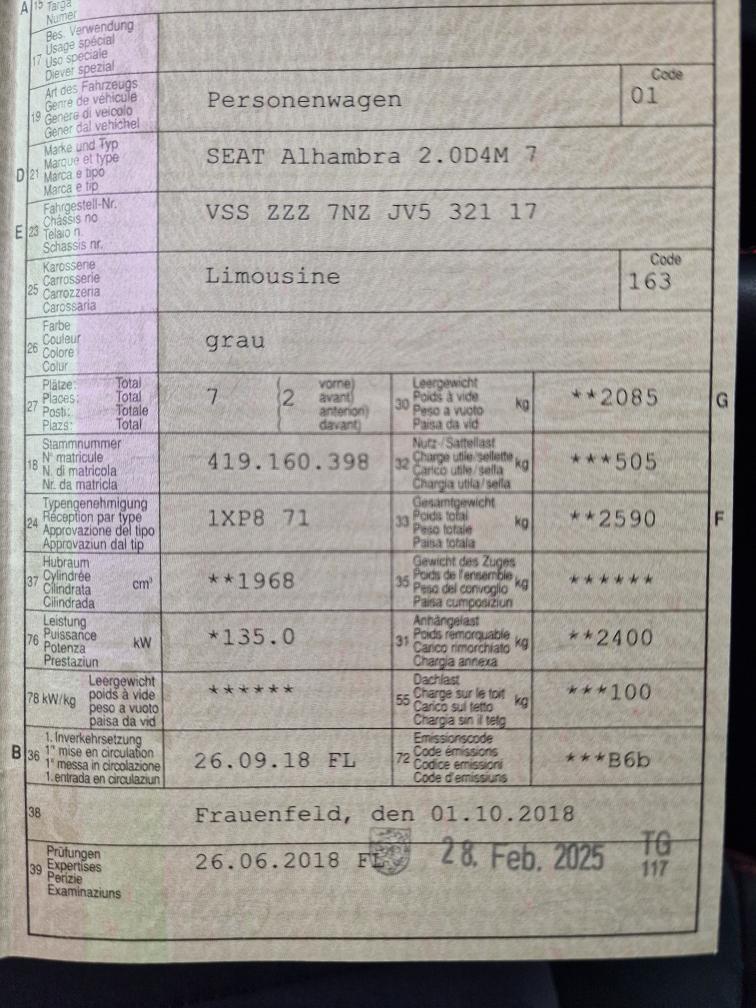 A 15 Targa
Numer
Bes. Verwendung
17 Usage spécial
Uso speciale
Diever spezial
Art des Fahrzeugs
19 Genre de véhicule
Genere di veicolo
Gener dal vehichel
Personenwagen
Code
01
Marke und Typ
D 21 Marque et type
Marca e tipo
Marca e tip
SEAT Alhambra 2.0D4M 7
Fahrgestell-Nr.
E 23 Châssis no
Telaio n.
Schassis nr.
VSS ZZZ 7NZ JV5 321 17
Karosserie
25 Carrosserie
Carrozzeria
Carossaria
Limousine
Code
163
Farbe
26 Couleur
Colore
Colur
grau
27 Plätze: Total
Places: Total
Posti: Totale
Plazs: Total
7 (2 vorne)
avant)
anteriori)
davant)
30 Leergewicht
Poids à vide
Peso a vuoto
Paisa da vid
kg
**2085 G
18 Stammnummer
N° matricule
N. di matricola
Nr. da matricla
419.160.398
32 Nutz-/Sattellast
Charge utile/sellette
Carico utile/sella
Chargia utila/sella
kg
***505
24 Typengenehmigung
Réception par type
Approvazione del tipo
Approvaziun dal tip
1XP8 71
33 Gesamtgewicht
Poids total
Peso totale
Paisa totala
kg
**2590 F
37 Hubraum
Cylindrée
Cilindrata
Cilindrada
cm³
**1968
35 Gewicht des Zuges
Poids de l'ensemble
Peso del convoglio
Paisa cumposiziun
kg
******
76 Leistung
Puissance
Potenza
Prestaziun
kW
*135.0
31 Anhängelast
Poids remorquable
Carico rimorchiato
Chargia annexa
kg
**2400
78 kW/kg Leergewicht
poids à vide
peso a vuoto
paisa da vid
******
55 Dachlast
Charge sur le toit
Carico sul tetto
Chargia sin il tetg
kg
***100
B 36 1. Inverkehrsetzung
1re mise en circulation
1a messa in circolazione
1. entrada en circulaziun
26.09.18 FL
72 Emissionscode
Code émissions
Codice emissioni
Code d'emissiuns
***B6b
38 Frauenfeld, den 01.10.2018
39 Prüfungen
Expertises
Perizie
Examinaziuns
26.06.2018 FL
28. Feb. 2025 TG
117